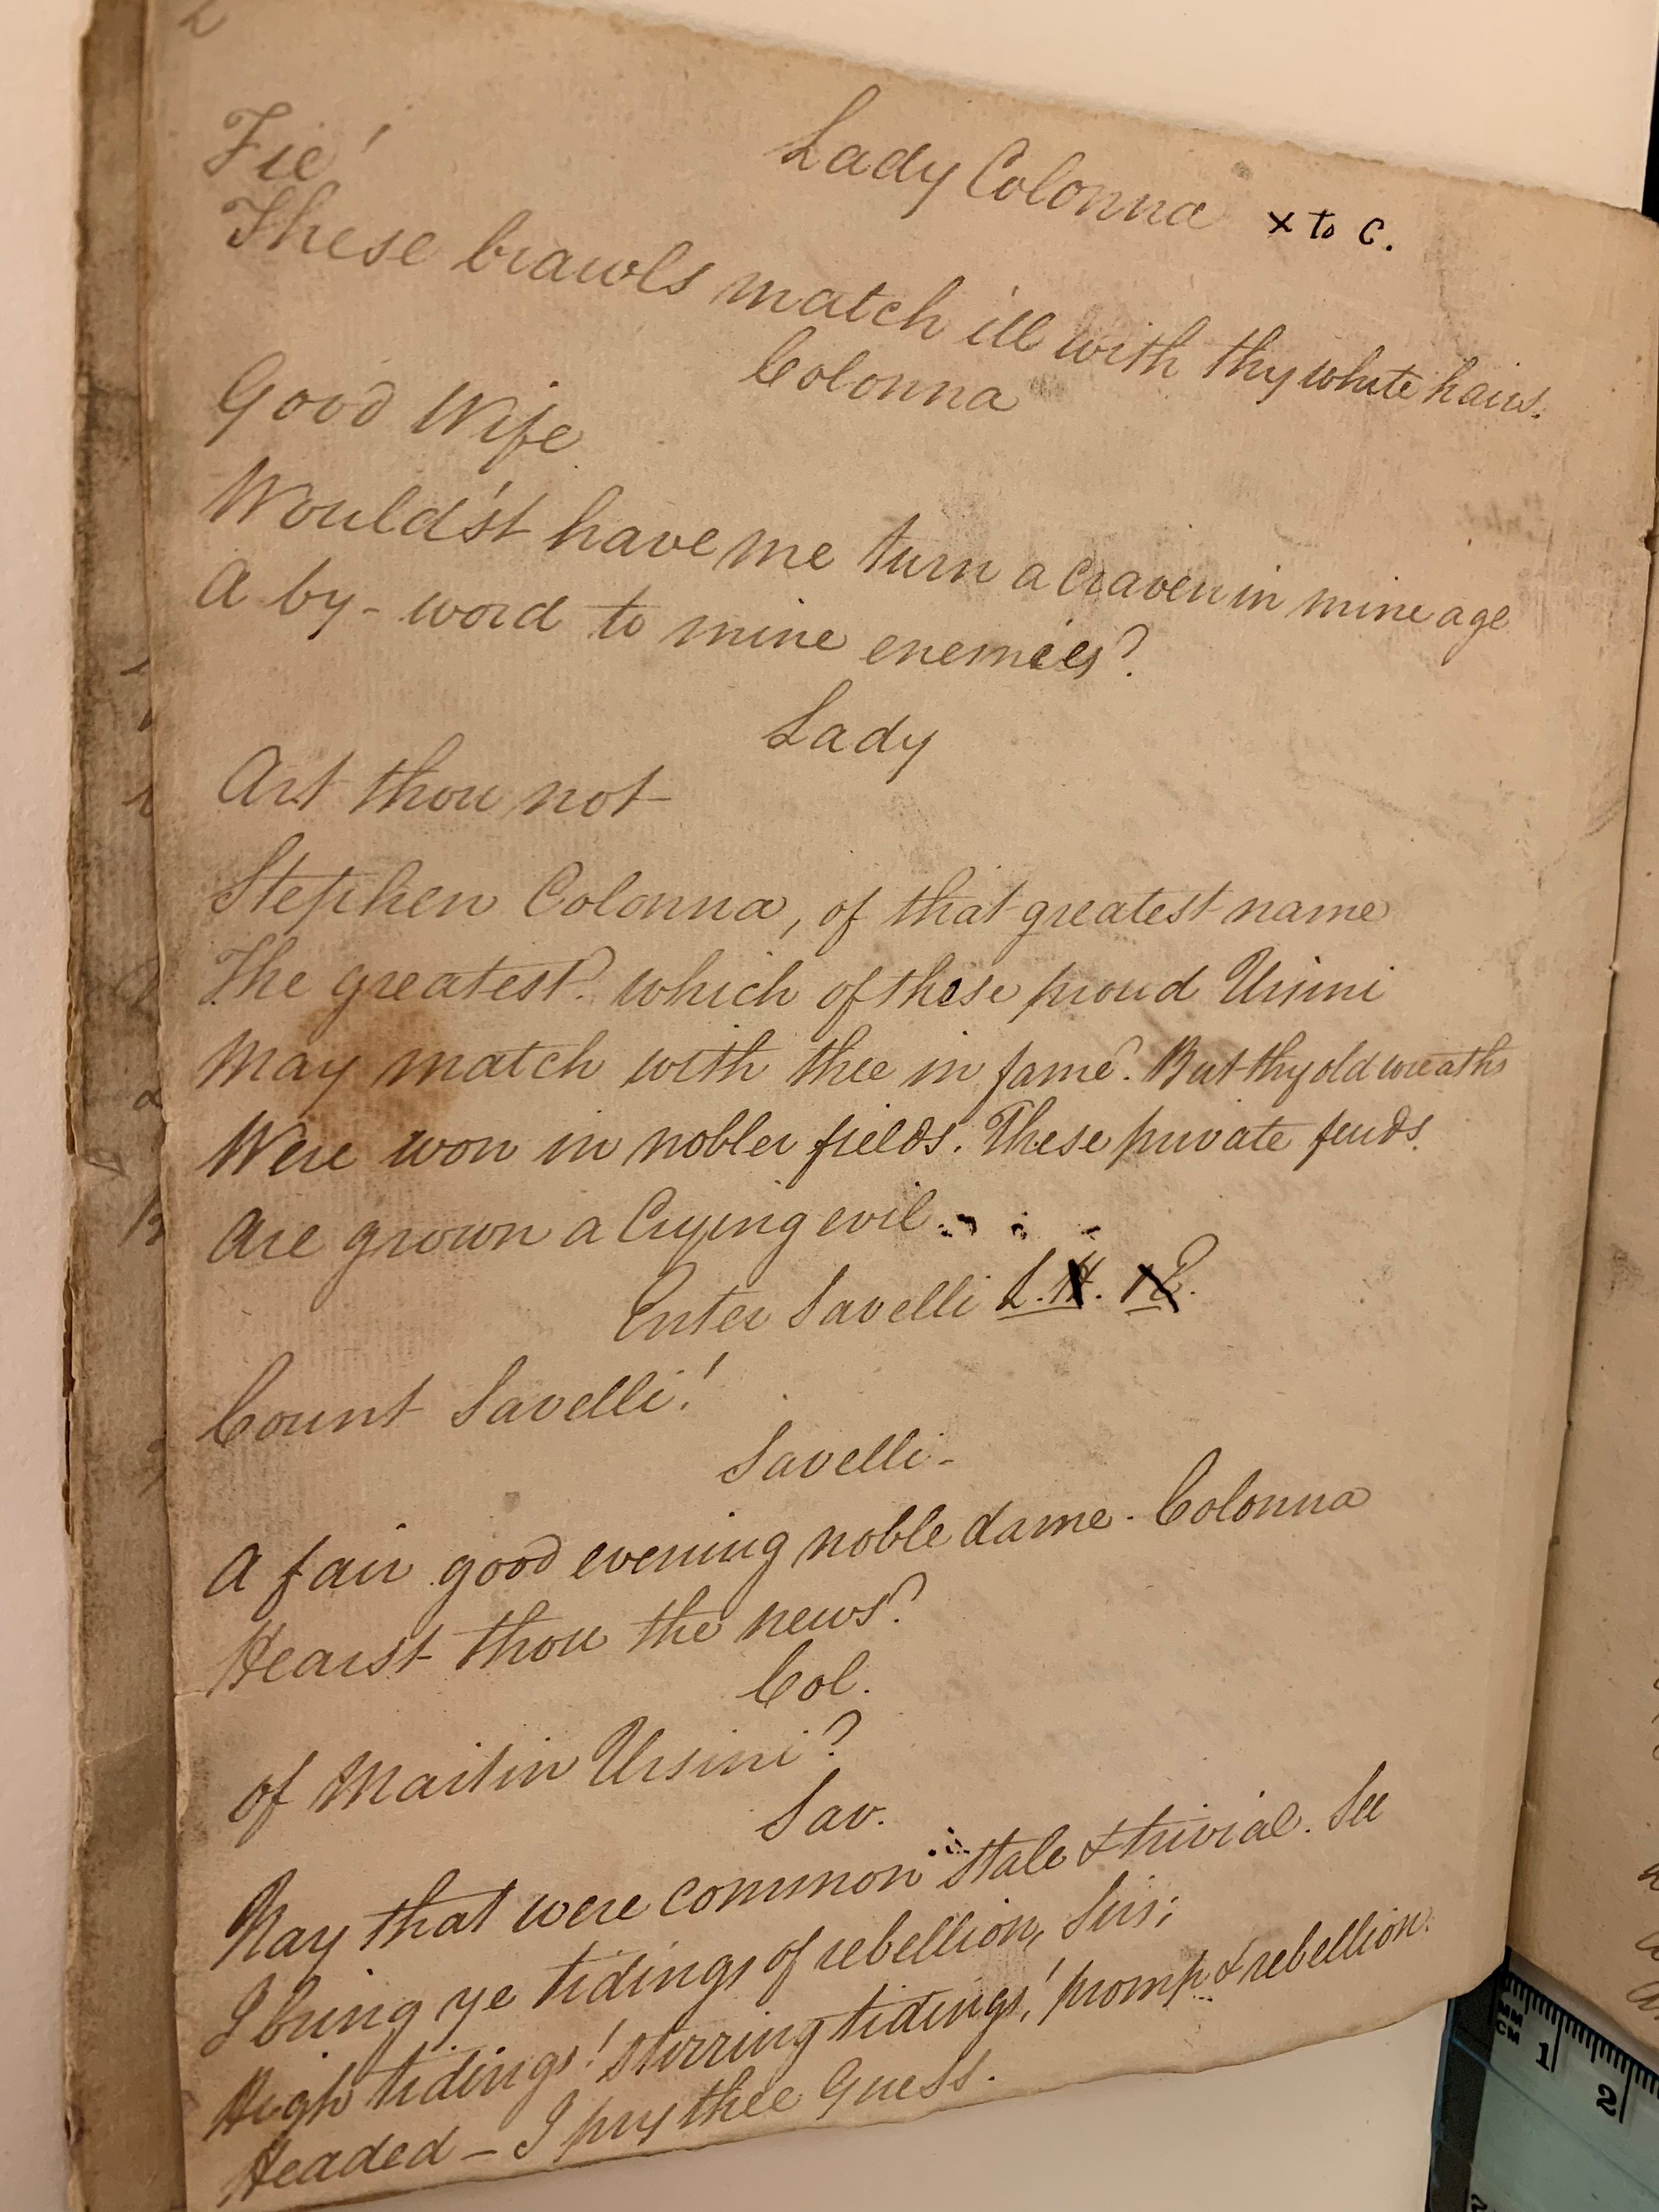 2
Lady Colonna x to C.
Fie!
These brawls match ill with thy white hairs.
Colonna
Good Wife
Would'st have me turn a craven in mine age
A by-word to mine enemies?
Lady
Art thou not
Stephen Colonna, of that greatest name
The greatest? which of these proud Ursini
May match with thee in fame? But thy old wreaths
Were won in nobler fields. These private feuds
Are grown a Crying evil.
Enter Savelli L.H.
Count Savelli!
Savelli-
A fair good evening noble dame. Colonna
Hearst thou the news?
Col.
of Martin Ursini?
Sav.
Nay that were common stale & trivial. See
I bring ye tidings of rebellion, Sirs;
High tidings! stirring tidings! promp & rebellion.
Headed - I pry thee Guess.
MM
CM 1
2